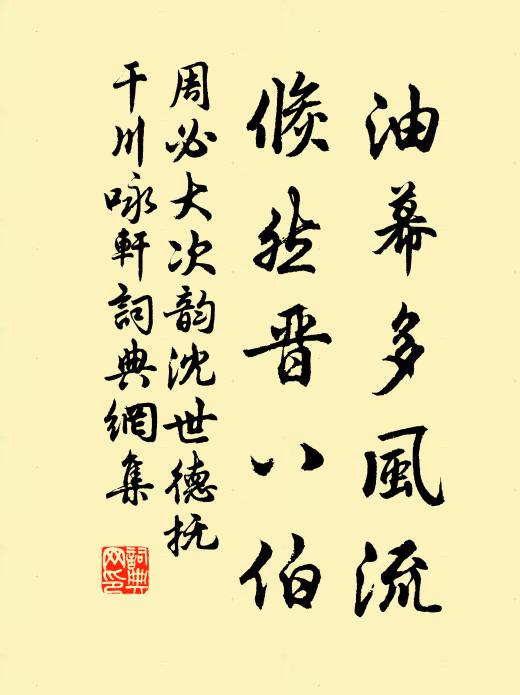 油幕多風流
倏然晋八伯
周必大次韵沈世德抚
干川咏軒詞典網集
詞典网印